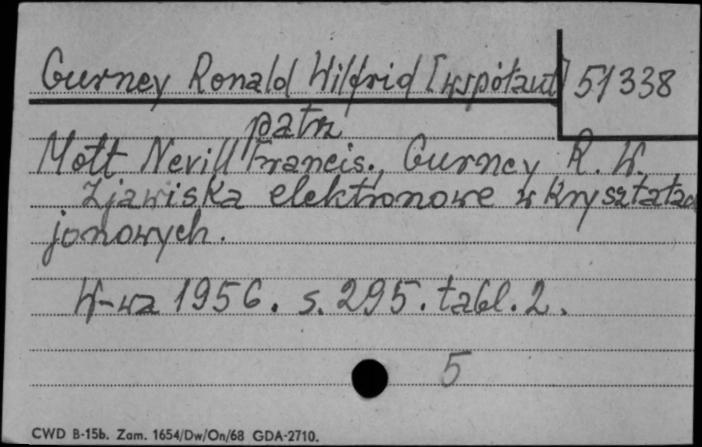 Gurney Ronald Wilfrid [współaut] 51338
patrz
Mott Nevill Francis., Gurney R. W.
Zjawiska elektronowe w kryształach
jonowych.
W-wa 1956. s. 295. tabl. 2.
5
CWD B-15b. Zam. 1654/Dw/On/68 GDA-2710.